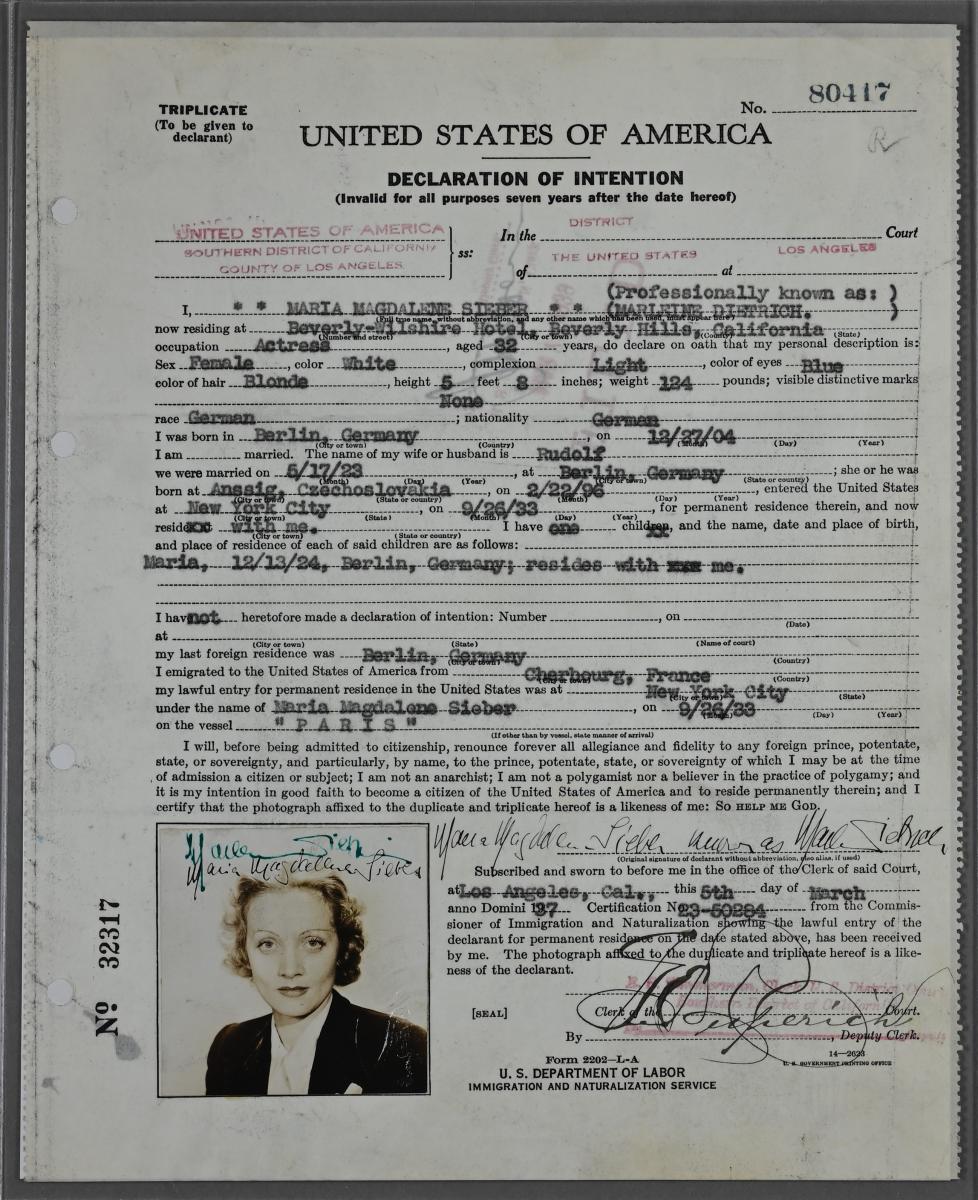 TRIPLICATE
(To be given to
declarant)
No. 80417
R
UNITED STATES OF AMERICA
DECLARATION OF INTENTION
(Invalid for all purposes seven years after the date hereof)
UNITED STATES OF AMERICA
SOUTHERN DISTRICT OF CALIFORNIA
COUNTY OF LOS ANGELES
ss:
In the DISTRICT Court
of THE UNITED STATES at LOS ANGELES
(Professionally known as: )
I, * * MARIA MAGDALENE SIEBER * * (MARLENE DIETRICH. )
(Full true name, without abbreviation, and any other name which has been used, must appear here)
now residing at Beverly-Wilshire Hotel, Beverly Hills, California
(Number and street) (City or town) (County) (State)
occupation Actress, aged 32 years, do declare on oath that my personal description is:
Sex Female, color White, complexion Light, color of eyes Blue
color of hair Blonde, height 5 feet 8 inches; weight 124 pounds; visible distinctive marks
None
race German; nationality German
I was born in Berlin, Germany, on 12/27/04
(City or town) (Country) (Month) (Day) (Year)
I am married. The name of my wife or husband is Rudolf
we were married on 5/17/23, at Berlin, Germany; she or he was
(Month) (Day) (Year) (City or town) (State or country)
born at Anssig, Czechoslovakia, on 2/22/96, entered the United States
(City or town) (State or country) (Month) (Day) (Year)
at New York City, on 9/26/33, for permanent residence therein, and now
(City or town) (State) (Month) (Day) (Year)
resides with me. I have one children, and the name, date and place of birth,
(City or town) (State or country)
and place of residence of each of said children are as follows:
Maria, 12/13/24, Berlin, Germany; resides with xxx me.
I have not heretofore made a declaration of intention: Number , on
(Date)
at
(City or town) (State) (Name of court)
my last foreign residence was Berlin, Germany
(City or town) (Country)
I emigrated to the United States of America from Cherbourg, France
(City or town) (Country)
my lawful entry for permanent residence in the United States was at New York City
(City or town) (State)
under the name of Maria Magdalene Sieber, on 9/26/33
(Month) (Day) (Year)
on the vessel "PARIS"
(If other than by vessel, state manner of arrival)
I will, before being admitted to citizenship, renounce forever all allegiance and fidelity to any foreign prince, potentate,
state, or sovereignty, and particularly, by name, to the prince, potentate, state, or sovereignty of which I may be at the time
of admission a citizen or subject; I am not an anarchist; I am not a polygamist nor a believer in the practice of polygamy; and
it is my intention in good faith to become a citizen of the United States of America and to reside permanently therein; and I
certify that the photograph affixed to the duplicate and triplicate hereof is a likeness of me: SO HELP ME GOD.
Maria Magdalene Sieber known as Marlene Dietrich
(Original signature of declarant without abbreviation, also alias, if used)
Maria Magdalena Sieber
Subscribed and sworn to before me in the office of the Clerk of said Court,
at Los Angeles, Cal., this 5th day of March
anno Domini 1937 Certification No 23-50284 from the Commis-
sioner of Immigration and Naturalization showing the lawful entry of the
declarant for permanent residence on the date stated above, has been received
by me. The photograph affixed to the duplicate and triplicate hereof is a like-
ness of the declarant.
[SEAL]
Clerk of the Court.
By , Deputy Clerk.
Form 2202-L-A
14-2623
U. S. GOVERNMENT PRINTING OFFICE
U. S. DEPARTMENT OF LABOR
IMMIGRATION AND NATURALIZATION SERVICE
No 32317